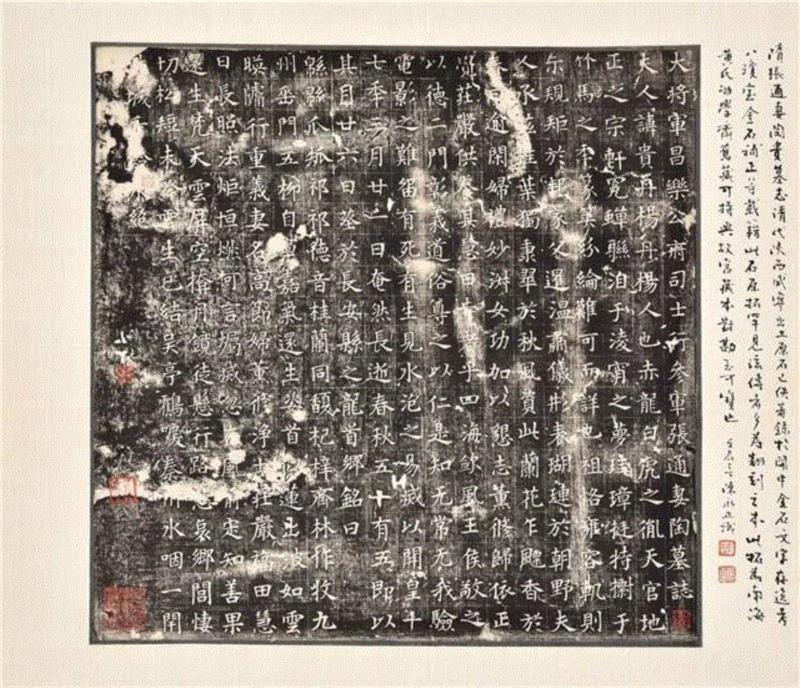 隋張通妻陶貴墓志清代陝西咸寧出土原石已佚著錄於關中金石文字存逸考
八瓊室金石補正等載籍此石原拓罕見流傳者多為翻刻之本此拓為南海
黃氏劬學齋舊藏可持與故宮藏本對勘至可寶也
大將軍昌樂公府司士行參軍張通妻陶墓誌
夫人諱貴丹楊丹楊人也赤龍白虎之胤天官地
正之宗軒冕蟬聯洎于淩霄之夢珪璋挺特于
竹馬之季篆紛綸難可而詳也祖恪雍容軌則
尓規矩於邦家父遲溫肅儀形春瑚璉於朝野夫
人承葉獨秉翠於秋風賁此蘭花乍飃香於
春日逾閑婦禮妙洞女功加以懇志薰修歸依正
莊嚴供養其慧日乎四海欽風王侯敬之
以德二門彰義道俗尊之以仁是知无常无我驗
電影之難留有死有生見水泡之易滅以開皇十
七年三月廿一日奄然長逝春秋五十有五即以
其月廿六日葬於長安縣之龍首鄉銘曰
緜緜瓜瓞祁祁德音桂蘭同馥杞梓齊林作牧九
州垂門五柳自語氣還生首蓮出波如雲
暎牗行重義妻名高節婦薰修淨土莊嚴福田慧
日長照法炬恒然何言燭滅忽風前定知善果
還生梵天雲屏空掩月鏡徒懸行路悲哀鄉閭悽
切松短未吟生已結吴亭鶴唳秦川水咽一閇